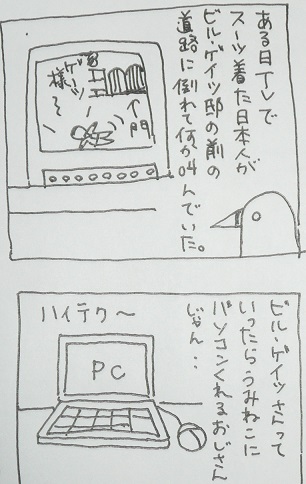 ある日TVで
スーツ着た日本人が
ビル・ゲイツ邸の前の
道路に倒れて何か叫んでいた。
ゲイツ
様〜
門
ビル・ゲイツさんって
いったらうみねこに
パソコンくれるおじさん
じゃん‥
ハイテク〜
PC